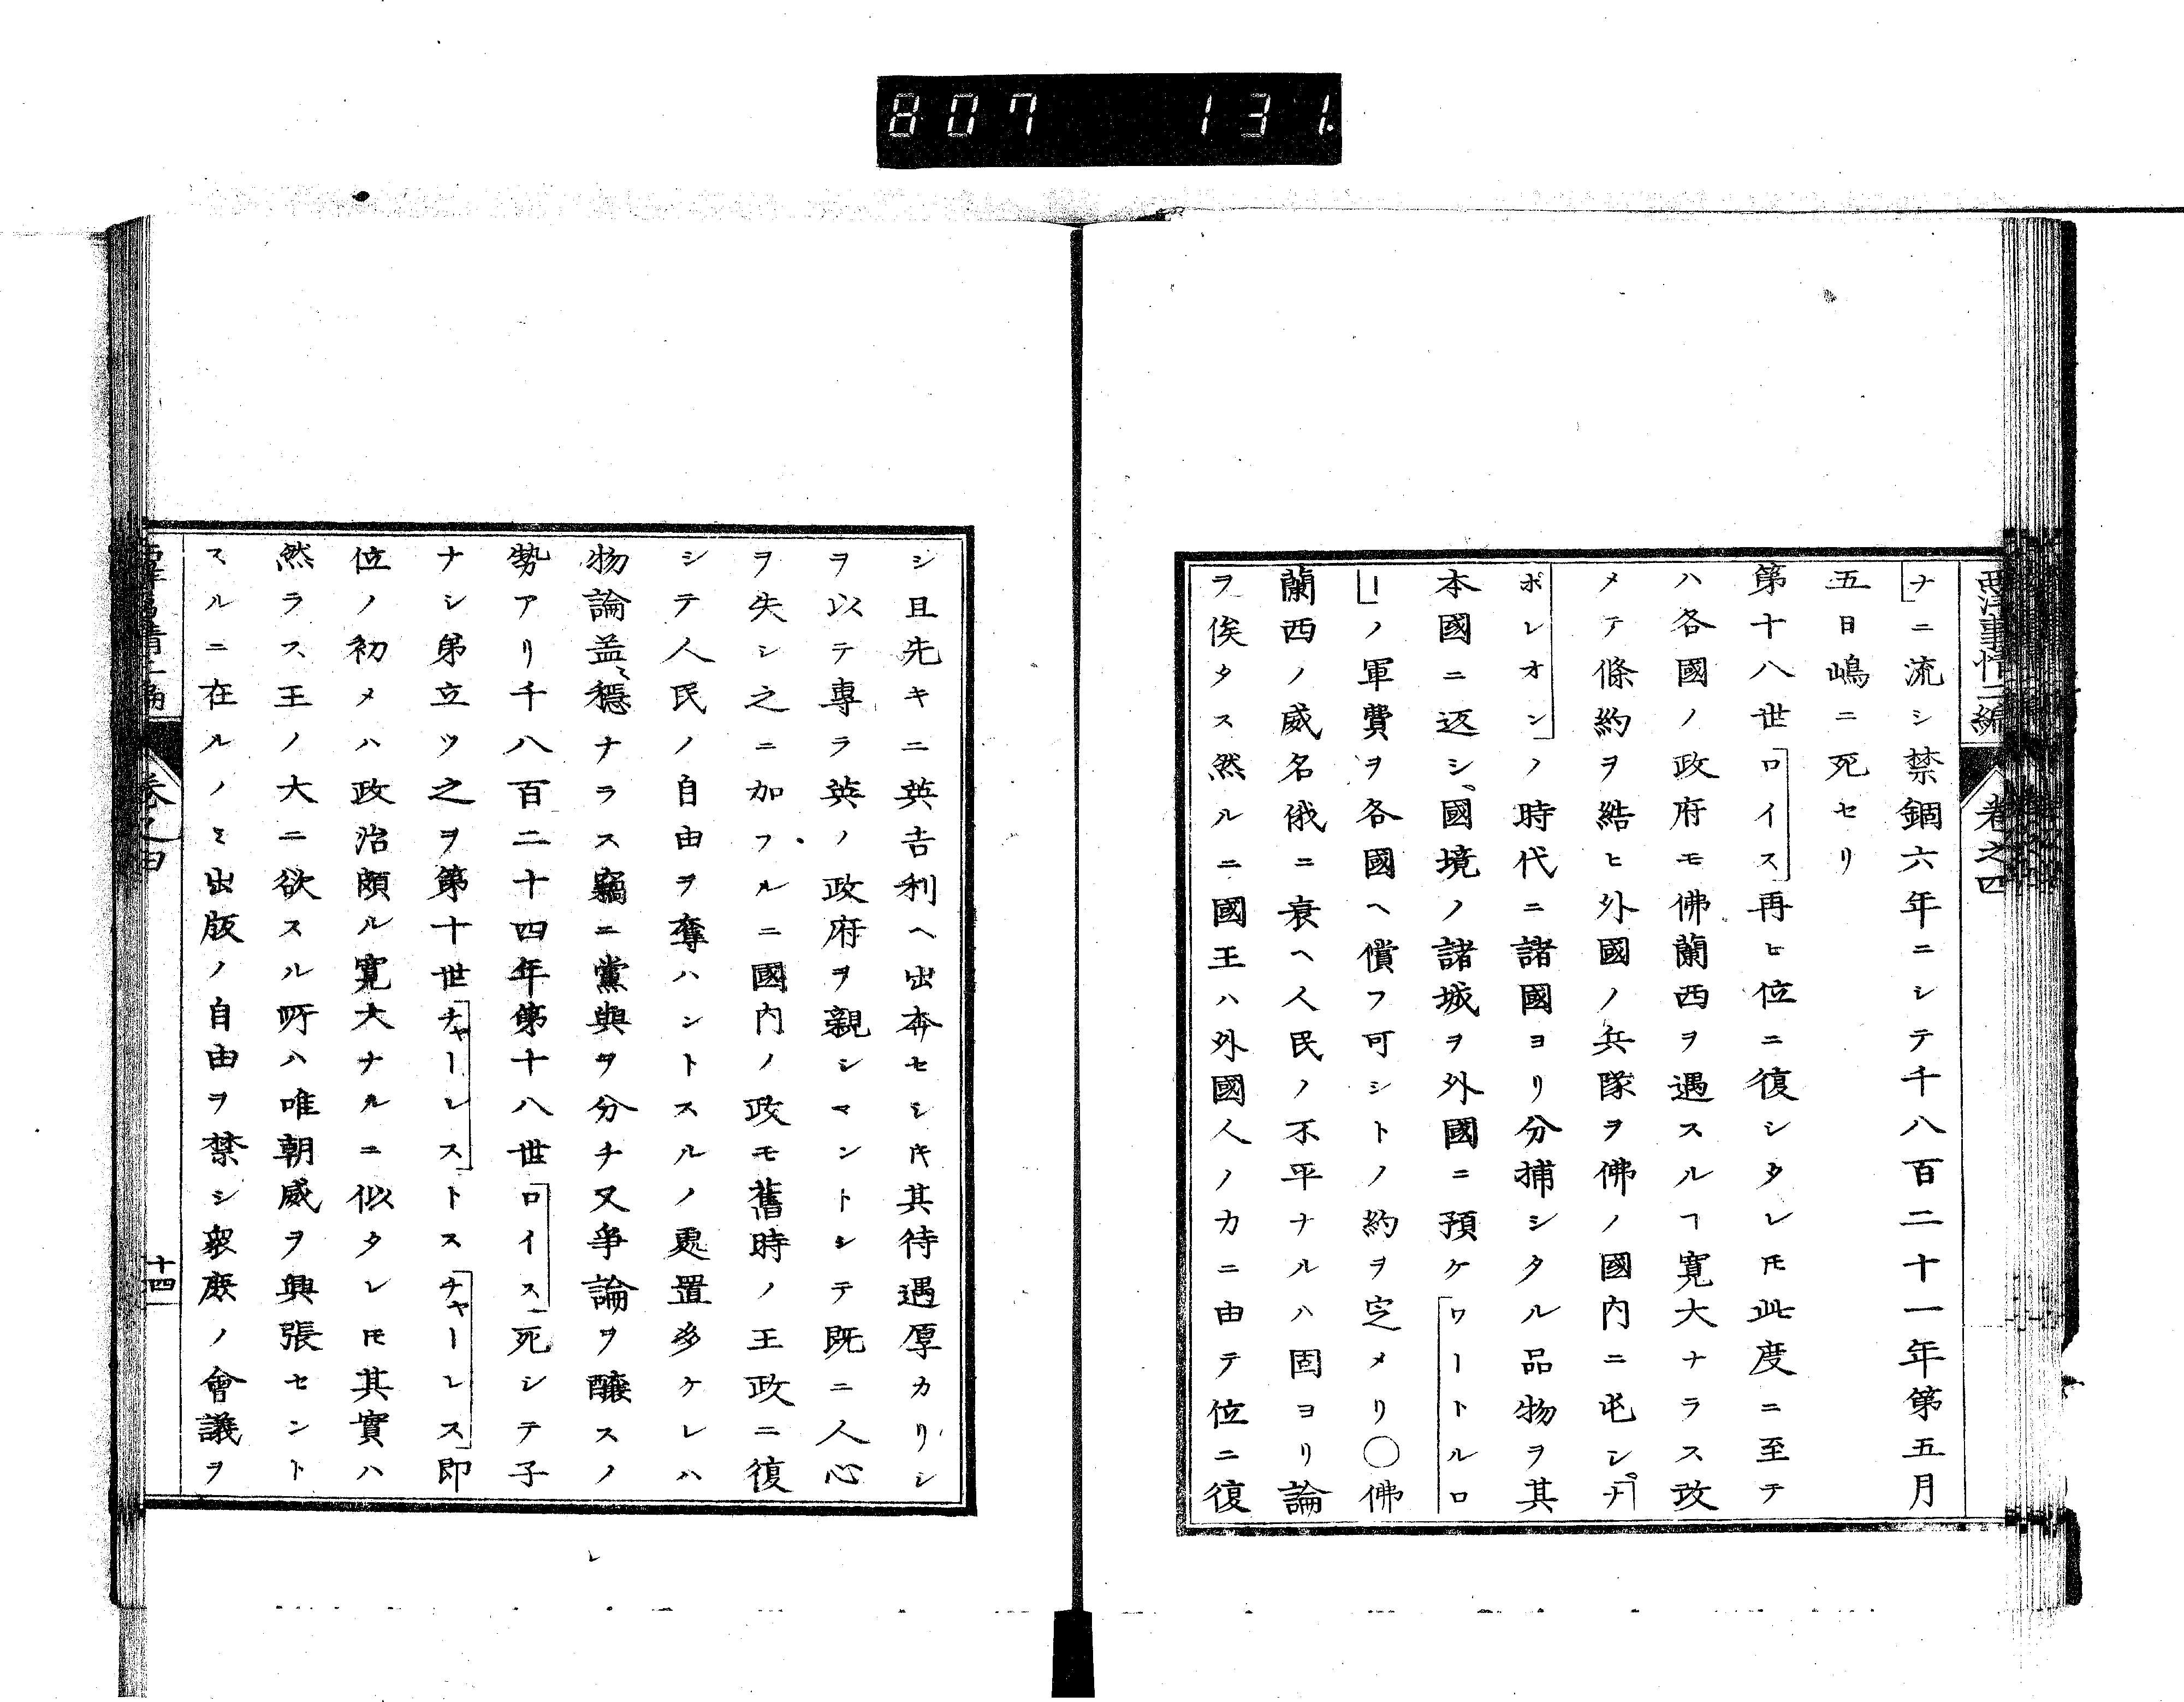 807 131.
西洋事情二編 卷之四
ナ」ニ流シ禁錮六年ニシテ千八百二十一年第五月
五日嶋ニ死セリ
第十八世「ロイス」再ヒ位ニ復シタレ𪜈此度ニ至テ
ハ各國ノ政府モ佛蘭西ヲ遇スルヿ寛大ナラス改
メテ條約ヲ結ヒ外國ノ兵隊ヲ佛ノ國内ニ屯シ「ナ
ポレオン」ノ時代ニ諸國ヨリ分捕シタル品物ヲ其
本國ニ返シ、國境ノ諸城ヲ外國ニ預ケ「ワートルロ
ー」ノ軍費ヲ各國ヘ償フ可シトノ約ヲ定メリ○佛
蘭西ノ威名俄ニ衰ヘ人民ノ不平ナルハ固ヨリ論
ヲ俟タス然ルニ國王ハ外國人ノカニ由テ位ニ復
シ且先キニ英吉利ヘ出奔セシ𪜈其待遇厚カリシ
ヲ以テ專ラ英ノ政府ヲ親シマントシテ既ニ人心
ヲ失シ之ニ加フルニ國内ノ政モ舊時ノ王政ニ復
シテ人民ノ自由ヲ奪ハントスルノ處置多ケレハ
物論益〻穩ナラス竊ニ黨與ヲ分チ又爭論ヲ釀スノ
勢アリ千八百二十四年第十八世「ロイス」死シテ子
ナシ弟立ツ之ヲ第十世「チャーレス」トス「チャーレス」即
位ノ初メハ政治頗ル寛大ナルニ似タレ𪜈其實ハ
然ラス、王ノ大ニ欲スル所ハ唯朝威ヲ興張セント
スルニ在ルノミ出版ノ自由ヲ禁シ衆庶ノ會議ヲ
西洋事情二編 卷之四 十四